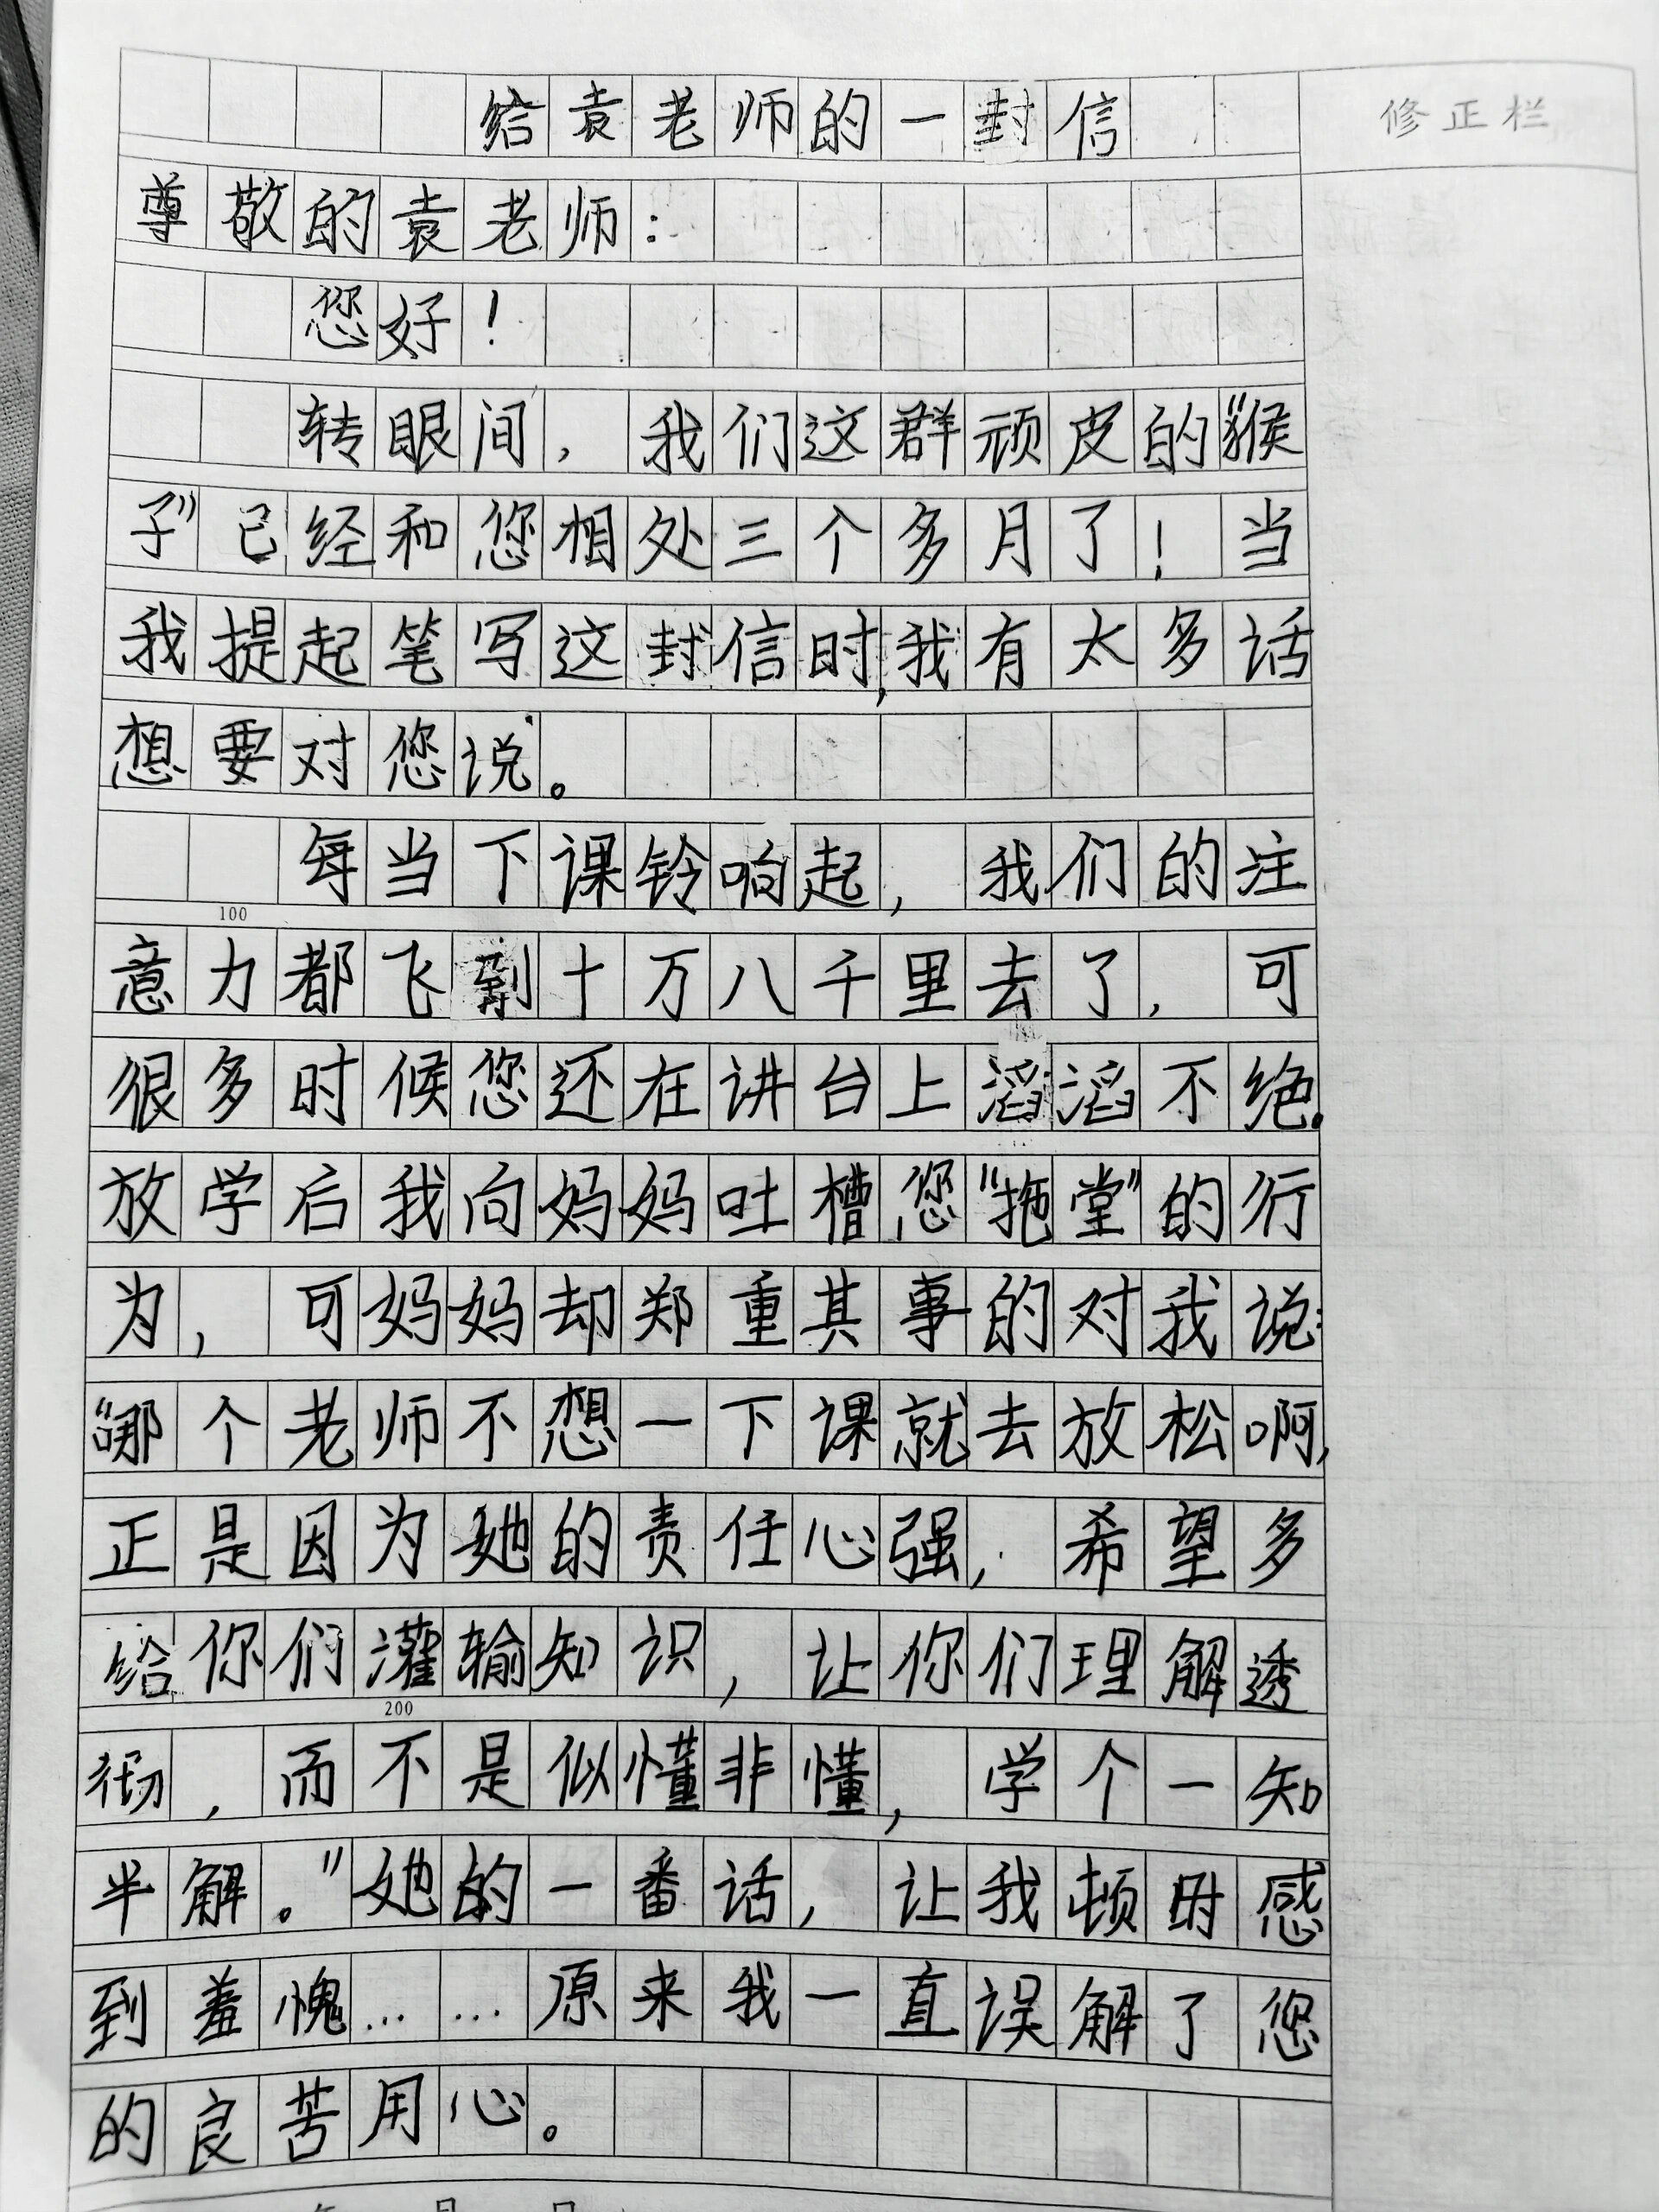 给袁老师的一封信
修正栏
尊敬的袁老师：
您好！
转眼间，我们这群顽皮的“猴
子”已经和您相处三个多月了！当
我提起笔写这封信时，我有太多话
想要对您说。
每当下课铃响起，我们的注
100
意力都飞到十万八千里去了，可
很多时候您还在讲台上滔滔不绝。
放学后我向妈妈吐槽您“拖堂”的行
为，可妈妈却郑重其事的对我说：
“哪个老师不想一下课就去放松啊，
正是因为她的责任心强，希望多
给你们灌输知识，让你们理解透
200
彻，而不是似懂非懂，学个一知
半解。”她的一番话，让我顿时感
到羞愧……原来我一直误解了您
的良苦用心。